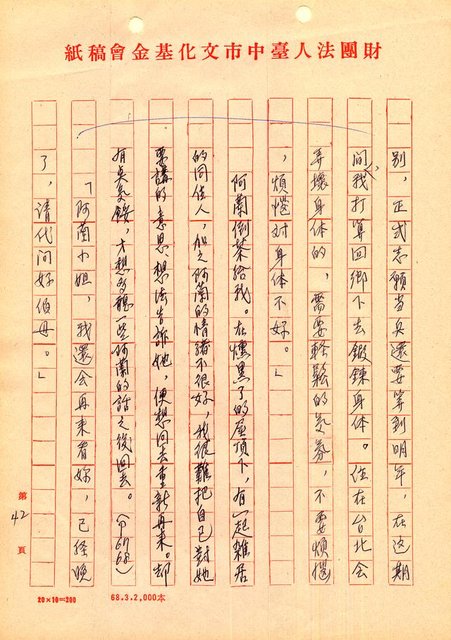 財團法人臺中市文化基金會稿紙
別，正式志願当兵還要等到明年，在这期
间，我打算回鄉下去鍛鍊身体。住在台北会
弄壞身体的，需要輕鬆的氣氛，不要煩惱
，煩惱对身体不好。」
阿蘭倒茶给我。在燻黑了的屋頂下，有一起雜居
的同住人，加之阿蘭的情緒不很好，我很難把自己對她
要講的意思、想法告訴她，便想回去重新再來。却
有点氣餒，才想多聽一些阿蘭的話之後回去。（P67 68）
「阿蘭小姐，我還会再來看妳，已経晚
了，请代问好伯母。」
第42頁
20×10＝200
68.3.2,000本